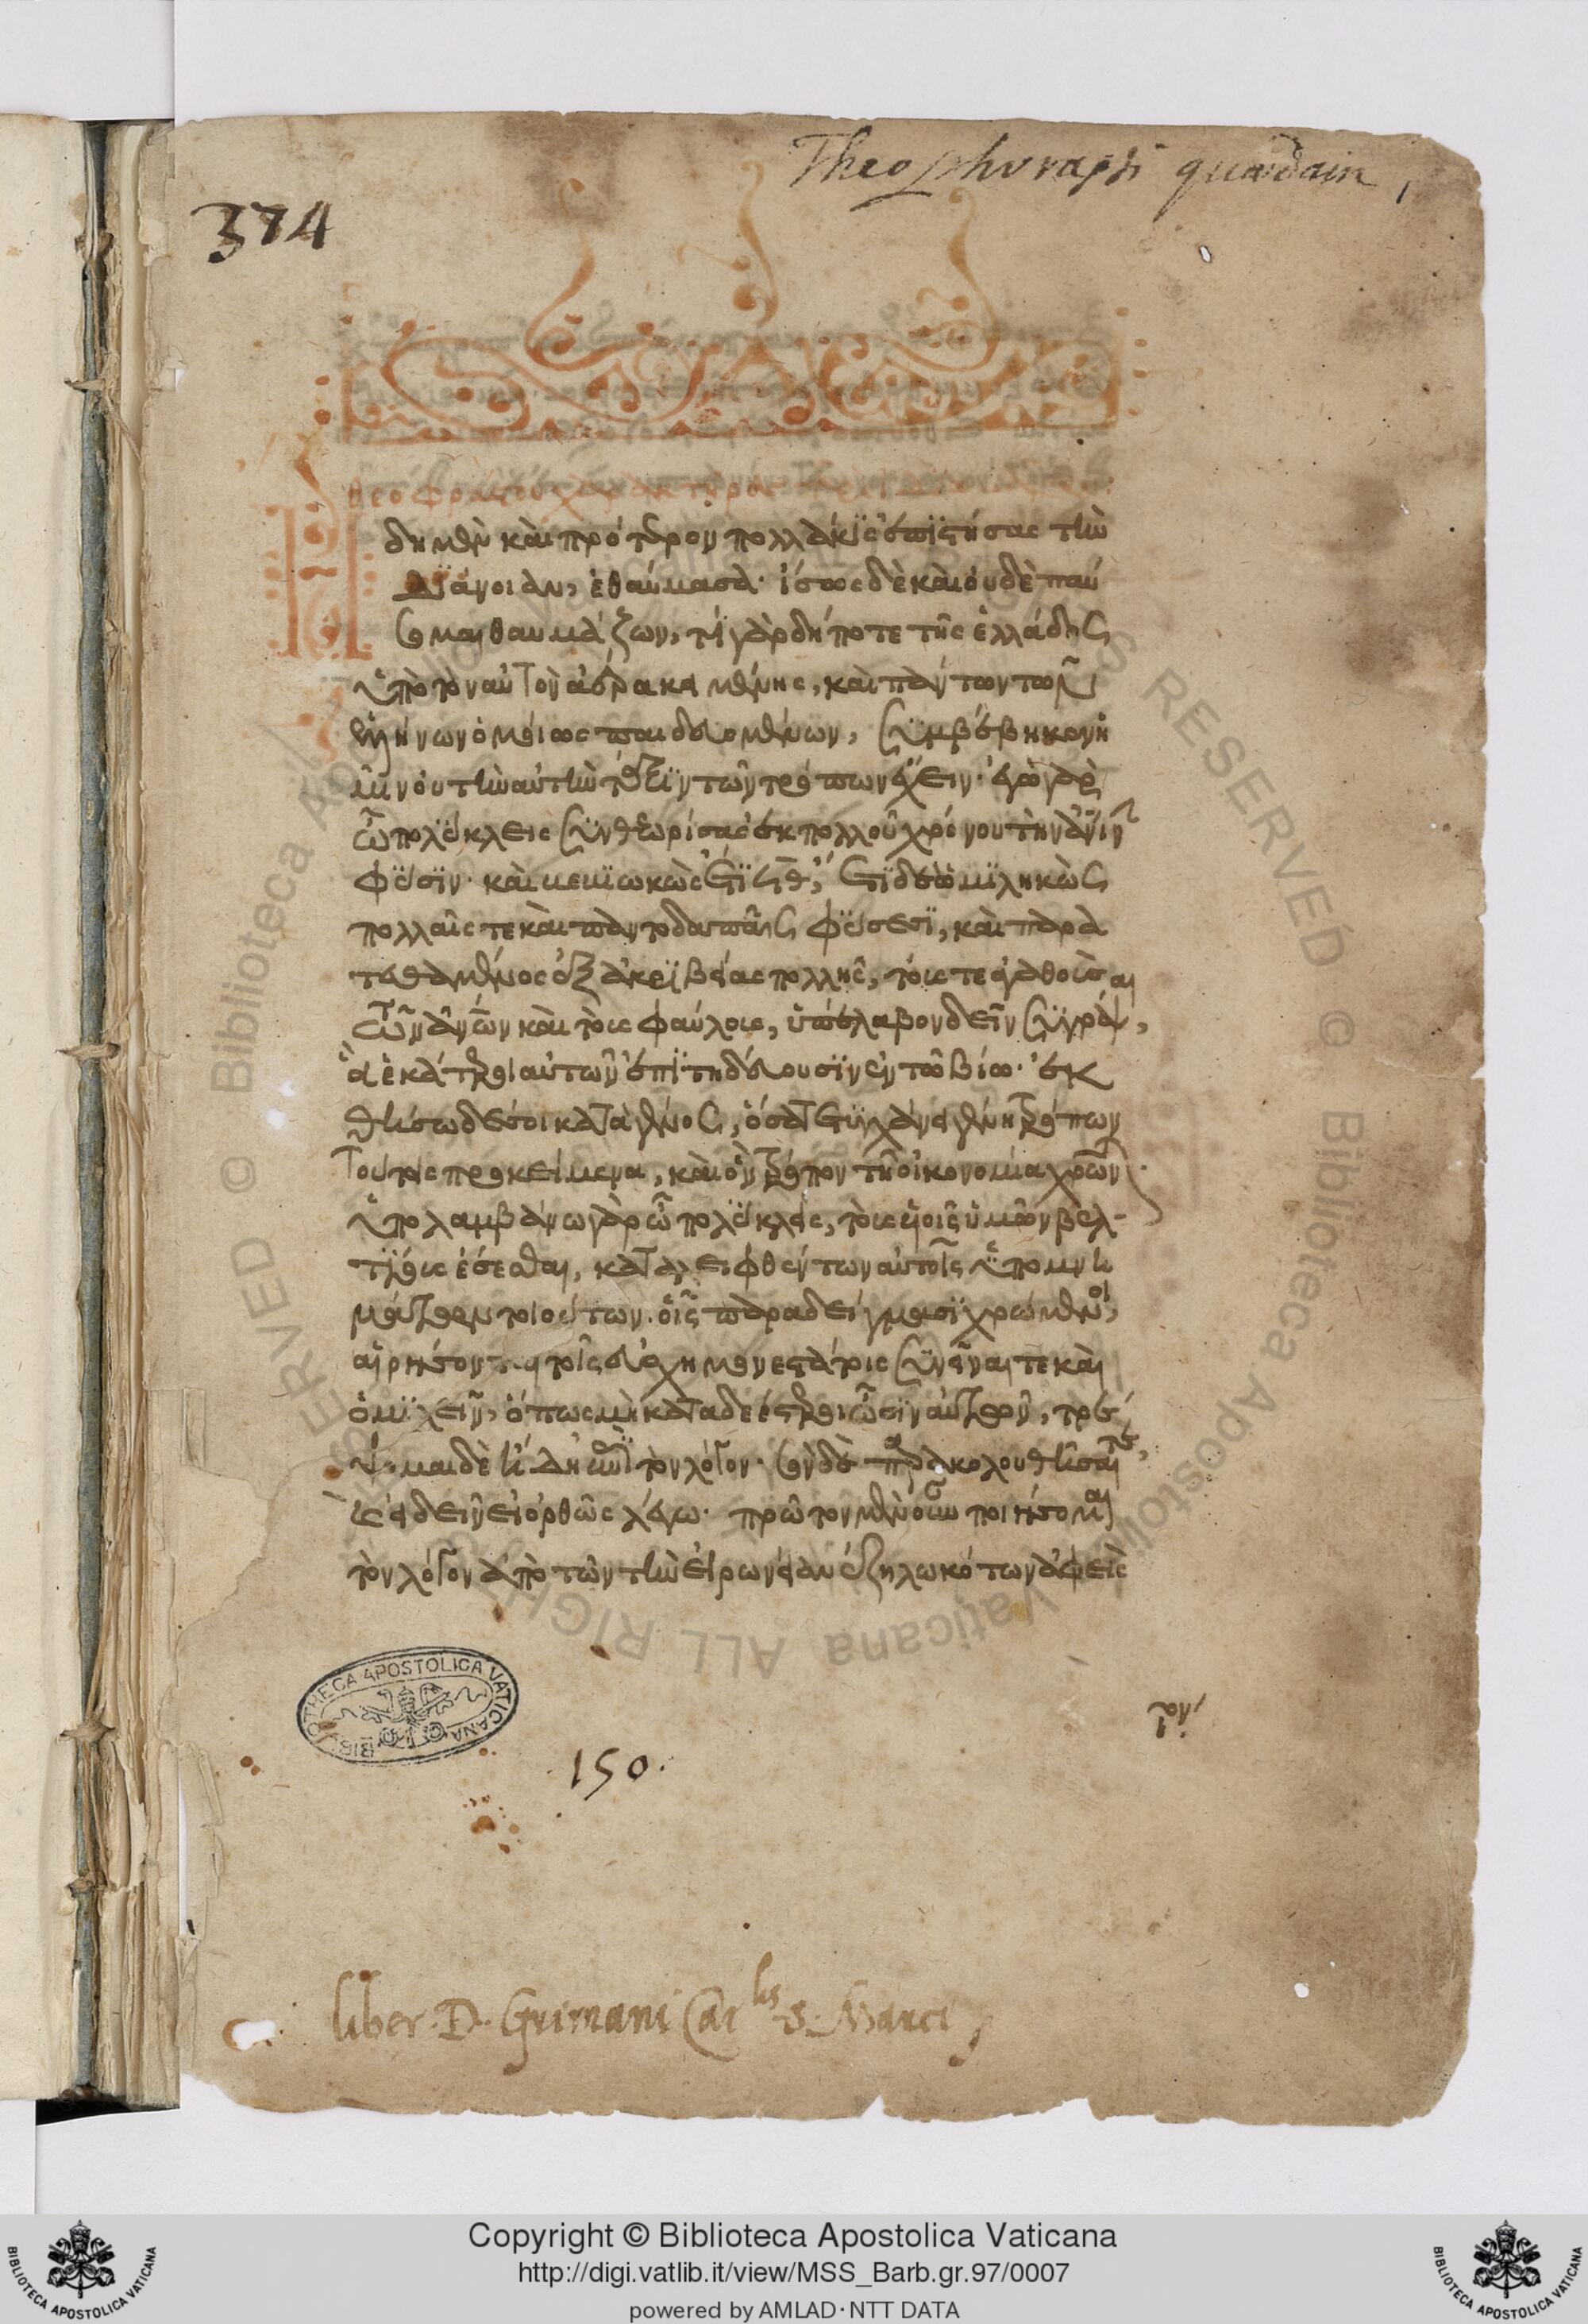 Theophrasti quædam,
374
θεοφράστου χαρακτῆρες
δη μὲν καὶ πρότερον πολλάκις ἐπιστήσας τὴν
διάνοιαν, ἐθαύμασα· ἴσως δὲ καὶ οὐδὲ παύ
σομαι θαυμάζων, τί γὰρ δήποτε τῆς ἑλλάδος
ὑπὸ τὸν αὐτὸν ἀέρα κειμένης, καὶ πάντων τῶν
ἑλλήνων ὁμοίως παιδευομένων, συμβέβηκεν ἡ
μῖν οὐ τὴν αὐτὴν τάξιν τῶν τρόπων ἔχειν· ἐγὼ γὰρ
ὦ πολύκλεις συνθεωρήσας ἐκ πολλοῦ χρόνου τὴν ἀνθρωπίνην
φύσιν· καὶ βεβιωκὼς ἔτι δὲ ὡμιληκὼς
πολλαῖς τε καὶ παντοδαπαῖς φύσεσι, καὶ παρα
τεθεαμένος ἐξ ἀκριβείας πολλῆς, τούς τε ἀγαθοὺς
τῶν ἀνθρώπων καὶ τοὺς φαύλους, ὑπέλαβον δεῖν συγγράψαι,
ἃ ἑκάτεροι αὐτῶν ἐπιτηδεύουσιν ἐν τῷ βίῳ· ἐκ
θήσω δέ σοι κατὰ γένος, ὅσα τε τυγχάνει γένη τρόπων
τούτοις προκείμενα, καὶ ὃν τρόπον τῇ οἰκονομίᾳ χρῶνται·
ὑπολαμβάνω γὰρ ὦ πολύκλεις, τοὺς υἱεῖς ὑμῶν βελ-
τίους ἔσεσθαι, καταλειφθέντων αὐτοῖς ὑπομνη
μάτων τοιούτων· οἷς παραδείγμασι χρώμενοι,
αἱρήσονται τοῖς εὐσχημονεστάτοις συνεῖναι τε καὶ
ὁμιλεῖν, ὅπως μὴ καταδεέστεροι ὦσιν αὐτῶν, τρέ
ψομαι δὲ ἤδη ἐπὶ τὸν λόγον· σὸν δὲ παρακολουθῆσαί τε,
καὶ εἰδεῖν εἰ ὀρθῶς λέγω· πρῶτον μὲν οὖν ποιήσομαι
τὸν λόγον ἀπὸ τῶν τὴν εἰρωνείαν ἐζηλωκότων ἀφεὶς
BIBLIOTHECA APOSTOLICA VATICANA
150.
liber D. Grimani Car.lis S. Marci
Copyright © Biblioteca Apostolica Vaticana
http://digi.vatlib.it/view/MSS_Barb.gr.97/0007
powered by AMLAD·NTT DATA